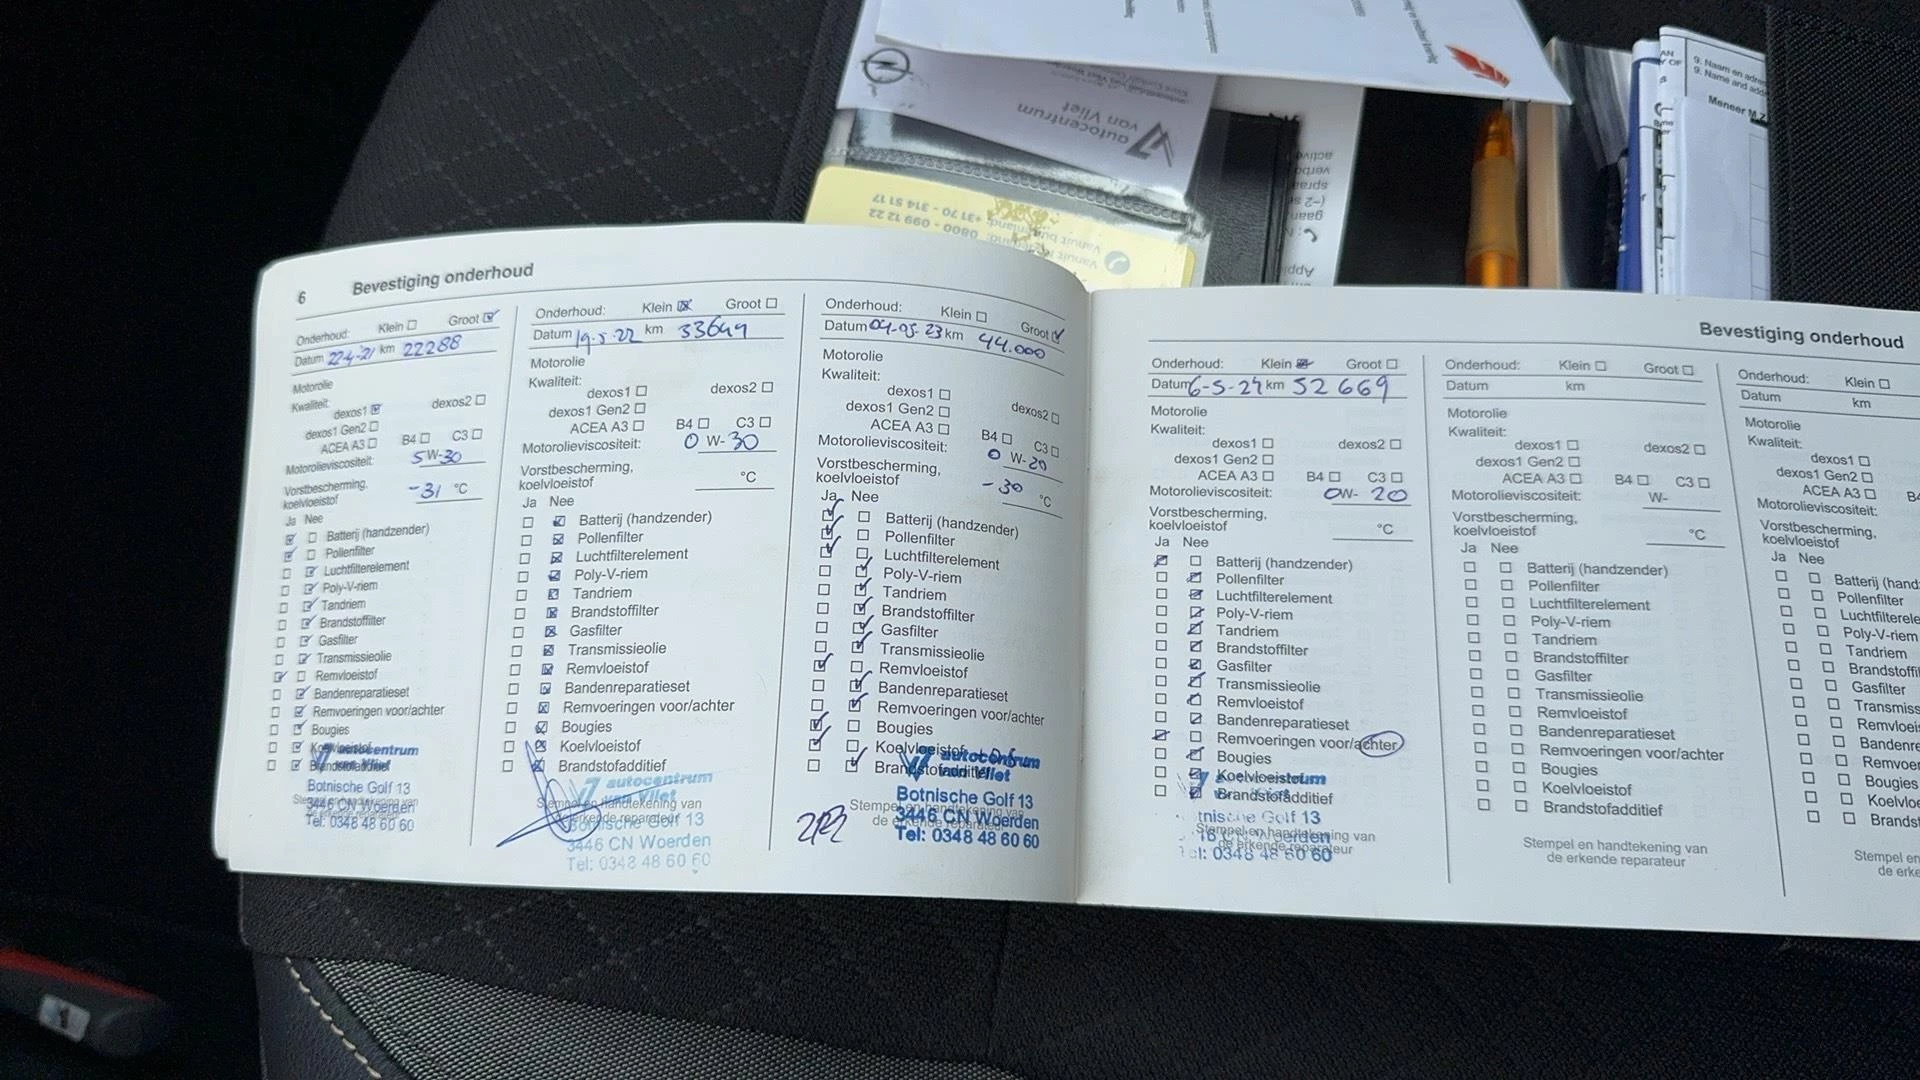 autocentrum
van Vliet
Vanuit
0800 - 099 12 22
Vanuit buitenland: +31 70 - 314 51 17
9. Naam en adre
9. Name and add
Meneer M.Z
6 Bevestiging onderhoud
Onderhoud: Klein Groot
Datum 22-4-'21 km 22288
Motorolie
Kwaliteit:
dexos1 dexos2
dexos1 Gen2
ACEA A3 B4 C3
Motorolieviscositeit: 5 W-30
Vorstbescherming,
koelvloeistof -31 °C
Ja Nee
Batterij (handzender)
Pollenfilter
Luchtfilterelement
Poly-V-riem
Tandriem
Brandstoffilter
Gasfilter
Transmissieolie
Remvloeistof
Bandenreparatieset
Remvoeringen voor/achter
Bougies
Koelvloeistof
Brandstofadditief
autocentrum
van Vliet
Botnische Golf 13
3446 CN Woerden
Tel: 0348 48 60 60
Onderhoud: Klein Groot
Datum 19-5-22 km 33649
Motorolie
Kwaliteit:
dexos1 dexos2
dexos1 Gen2
ACEA A3 B4 C3
Motorolieviscositeit: 0 W-30
Vorstbescherming,
koelvloeistof °C
Ja Nee
Batterij (handzender)
Pollenfilter
Luchtfilterelement
Poly-V-riem
Tandriem
Brandstoffilter
Gasfilter
Transmissieolie
Remvloeistof
Bandenreparatieset
Remvoeringen voor/achter
Bougies
Koelvloeistof
Brandstofadditief
Stempel en handtekening van
de erkende reparateur
autocentrum
van Vliet
Botnische Golf 13
3446 CN Woerden
Tel: 0348 48 60 60
Onderhoud: Klein Groot
Datum 04-05-23 km 44.000
Motorolie
Kwaliteit:
dexos1 dexos2
dexos1 Gen2
ACEA A3 B4 C3
Motorolieviscositeit: 0 W-20
Vorstbescherming,
koelvloeistof -30 °C
Ja Nee
Batterij (handzender)
Pollenfilter
Luchtfilterelement
Poly-V-riem
Tandriem
Brandstoffilter
Gasfilter
Transmissieolie
Remvloeistof
Bandenreparatieset
Remvoeringen voor/achter
Bougies
Koelvloeistof
Brandstofadditief
Stempel en handtekening van
de erkende reparateur
autocentrum
van Vliet
Botnische Golf 13
3446 CN Woerden
Tel: 0348 48 60 60
Bevestiging onderhoud
Onderhoud: Klein Groot
Datum 6-5-24 km 52669
Motorolie
Kwaliteit:
dexos1 dexos2
dexos1 Gen2
ACEA A3 B4 C3
Motorolieviscositeit: 0W- 20
Vorstbescherming,
koelvloeistof °C
Ja Nee
Batterij (handzender)
Pollenfilter
Luchtfilterelement
Poly-V-riem
Tandriem
Brandstoffilter
Gasfilter
Transmissieolie
Remvloeistof
Bandenreparatieset
Remvoeringen voor/achter
Bougies
Koelvloeistof
Brandstofadditief
Stempel en handtekening van
de erkende reparateur
tnische Golf 13
Woerden
0348 48 60 60
Onderhoud: Klein Groot
Datum km
Motorolie
Kwaliteit:
dexos1 dexos2
dexos1 Gen2
ACEA A3 B4 C3
Motorolieviscositeit: W-
Vorstbescherming,
koelvloeistof °C
Ja Nee
Batterij (handzender)
Pollenfilter
Luchtfilterelement
Poly-V-riem
Tandriem
Brandstoffilter
Gasfilter
Transmissieolie
Remvloeistof
Bandenreparatieset
Remvoeringen voor/achter
Bougies
Koelvloeistof
Brandstofadditief
Stempel en handtekening van
de erkende reparateur
Onderhoud: Klein
Datum km
Motorolie
Kwaliteit:
dexos1
dexos1 Gen2
ACEA A3 B
Motorolieviscositeit:
Vorstbescherming,
koelvloeistof
Ja Nee
Batterij (hand
Pollenfilter
Luchtfiltere
Poly-V-riem
Tandriem
Brandstoffil
Gasfilter
Transmiss
Remvloei
Bandenre
Remvoer
Bougies
Koelvlo
Brandst
Stempel en
de erke